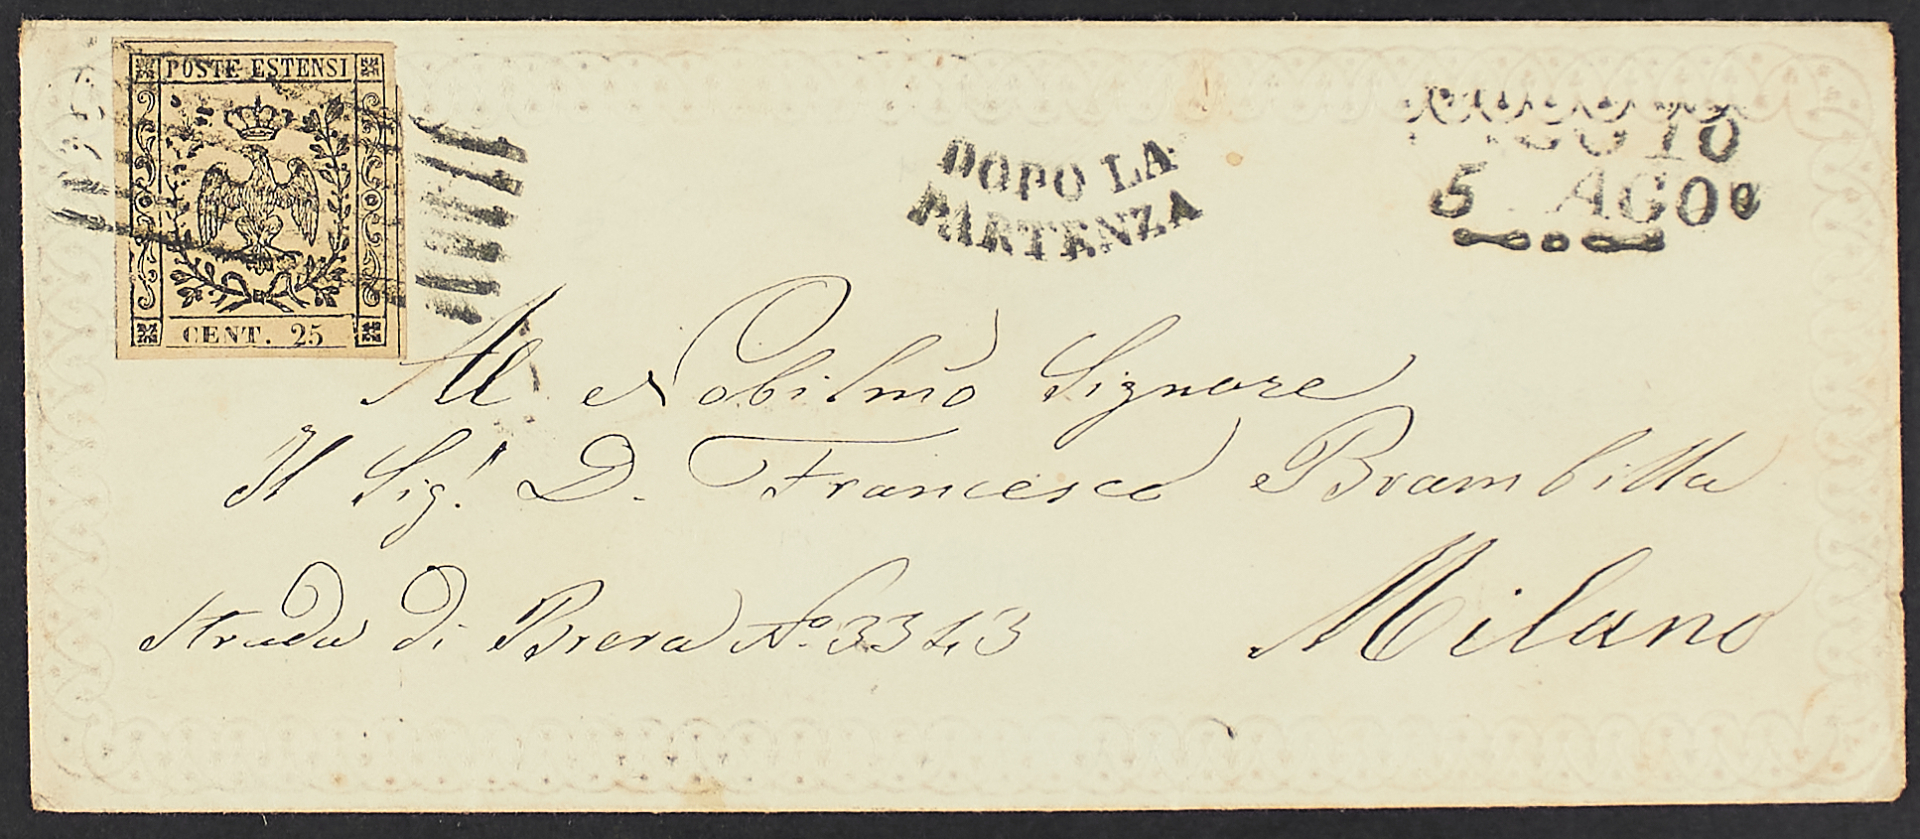 POSTE ESTENSI
CENT. 25
DOPO LA
PARTENZA
5 AGO
Al Nobilmo Signore
Il Sigr. D. Francesco Brambilla
Strada di Brera No. 3343
Milano